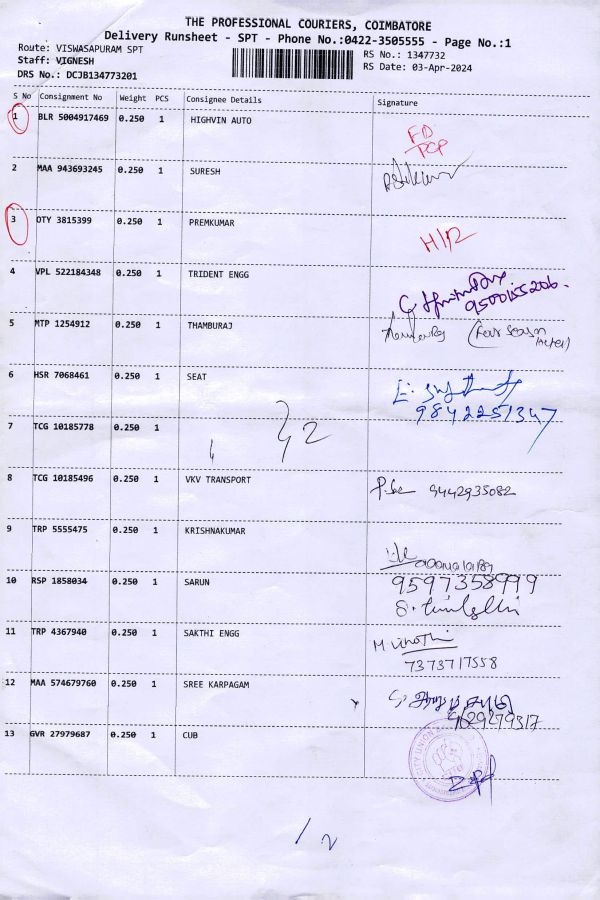 THE PROFESSIONAL COURIERS, COIMBATORE
Delivery Runsheet - SPT - Phone No.:0422-3505555 - Page No.:1
Route: VISWASAPURAM SPT
Staff: VIGNESH
DRS No.: DCJB134773201
RS No.: 1347732
RS Date: 03-Apr-2024
S No Consignment No Weight PCS Consignee Details Signature
1 BLR 5004917469 0.250 1 HIGHVIN AUTO
FD
PCP
2 MAA 943693245 0.250 1 SURESH
3 OTY 3815399 0.250 1 PREMKUMAR
H/R
4 VPL 522184348 0.250 1 TRIDENT ENGG
9500155206
5 MTP 1254912 0.250 1 THAMBURAJ
6 HSR 7068461 0.250 1 SEAT
9842251347
7 TCG 10185778 0.250 1
8 TCG 10185496 0.250 1 VKV TRANSPORT
9442935082
9 TRP 5555475 0.250 1 KRISHNAKUMAR
10 RSP 1858034 0.250 1 SARUN
9597358999
11 TRP 4367940 0.250 1 SAKTHI ENGG
M Vinothi
7373717558
12 MAA 574679760 0.250 1 SREE KARPAGAM
13 GVR 27979687 0.250 1 CUB
CITY UNION